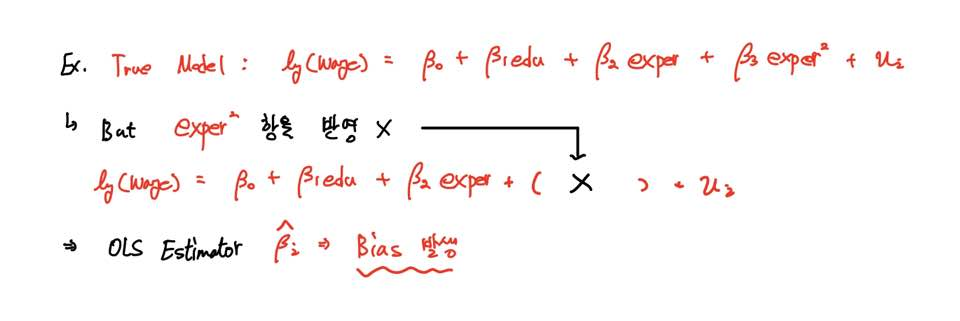 Ex. True Model : log(wage) = β₀ + β₁edu + β₂ exper + β₃ exper² + uᵢ
↳ But exper² 항을 반영 X
log(wage) = β₀ + β₁edu + β₂ exper + ( X ) + uᵢ
⇒ OLS Estimator β̂ᵢ ⇒ Bias 발생